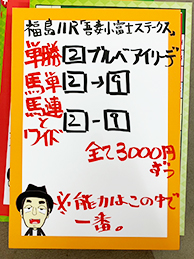 福島11R「吾妻小富士ステークス」
単勝 2 ブルベアイリーデ
馬単 2→9
馬連とワイド 2-9
全て3000円ずつ
必ず能力はこの中で一番。